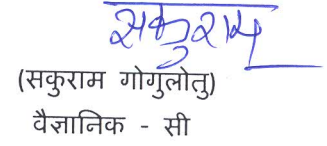 सकुराम
(सकुराम गोगुलोतु)
वैज्ञानिक - सी